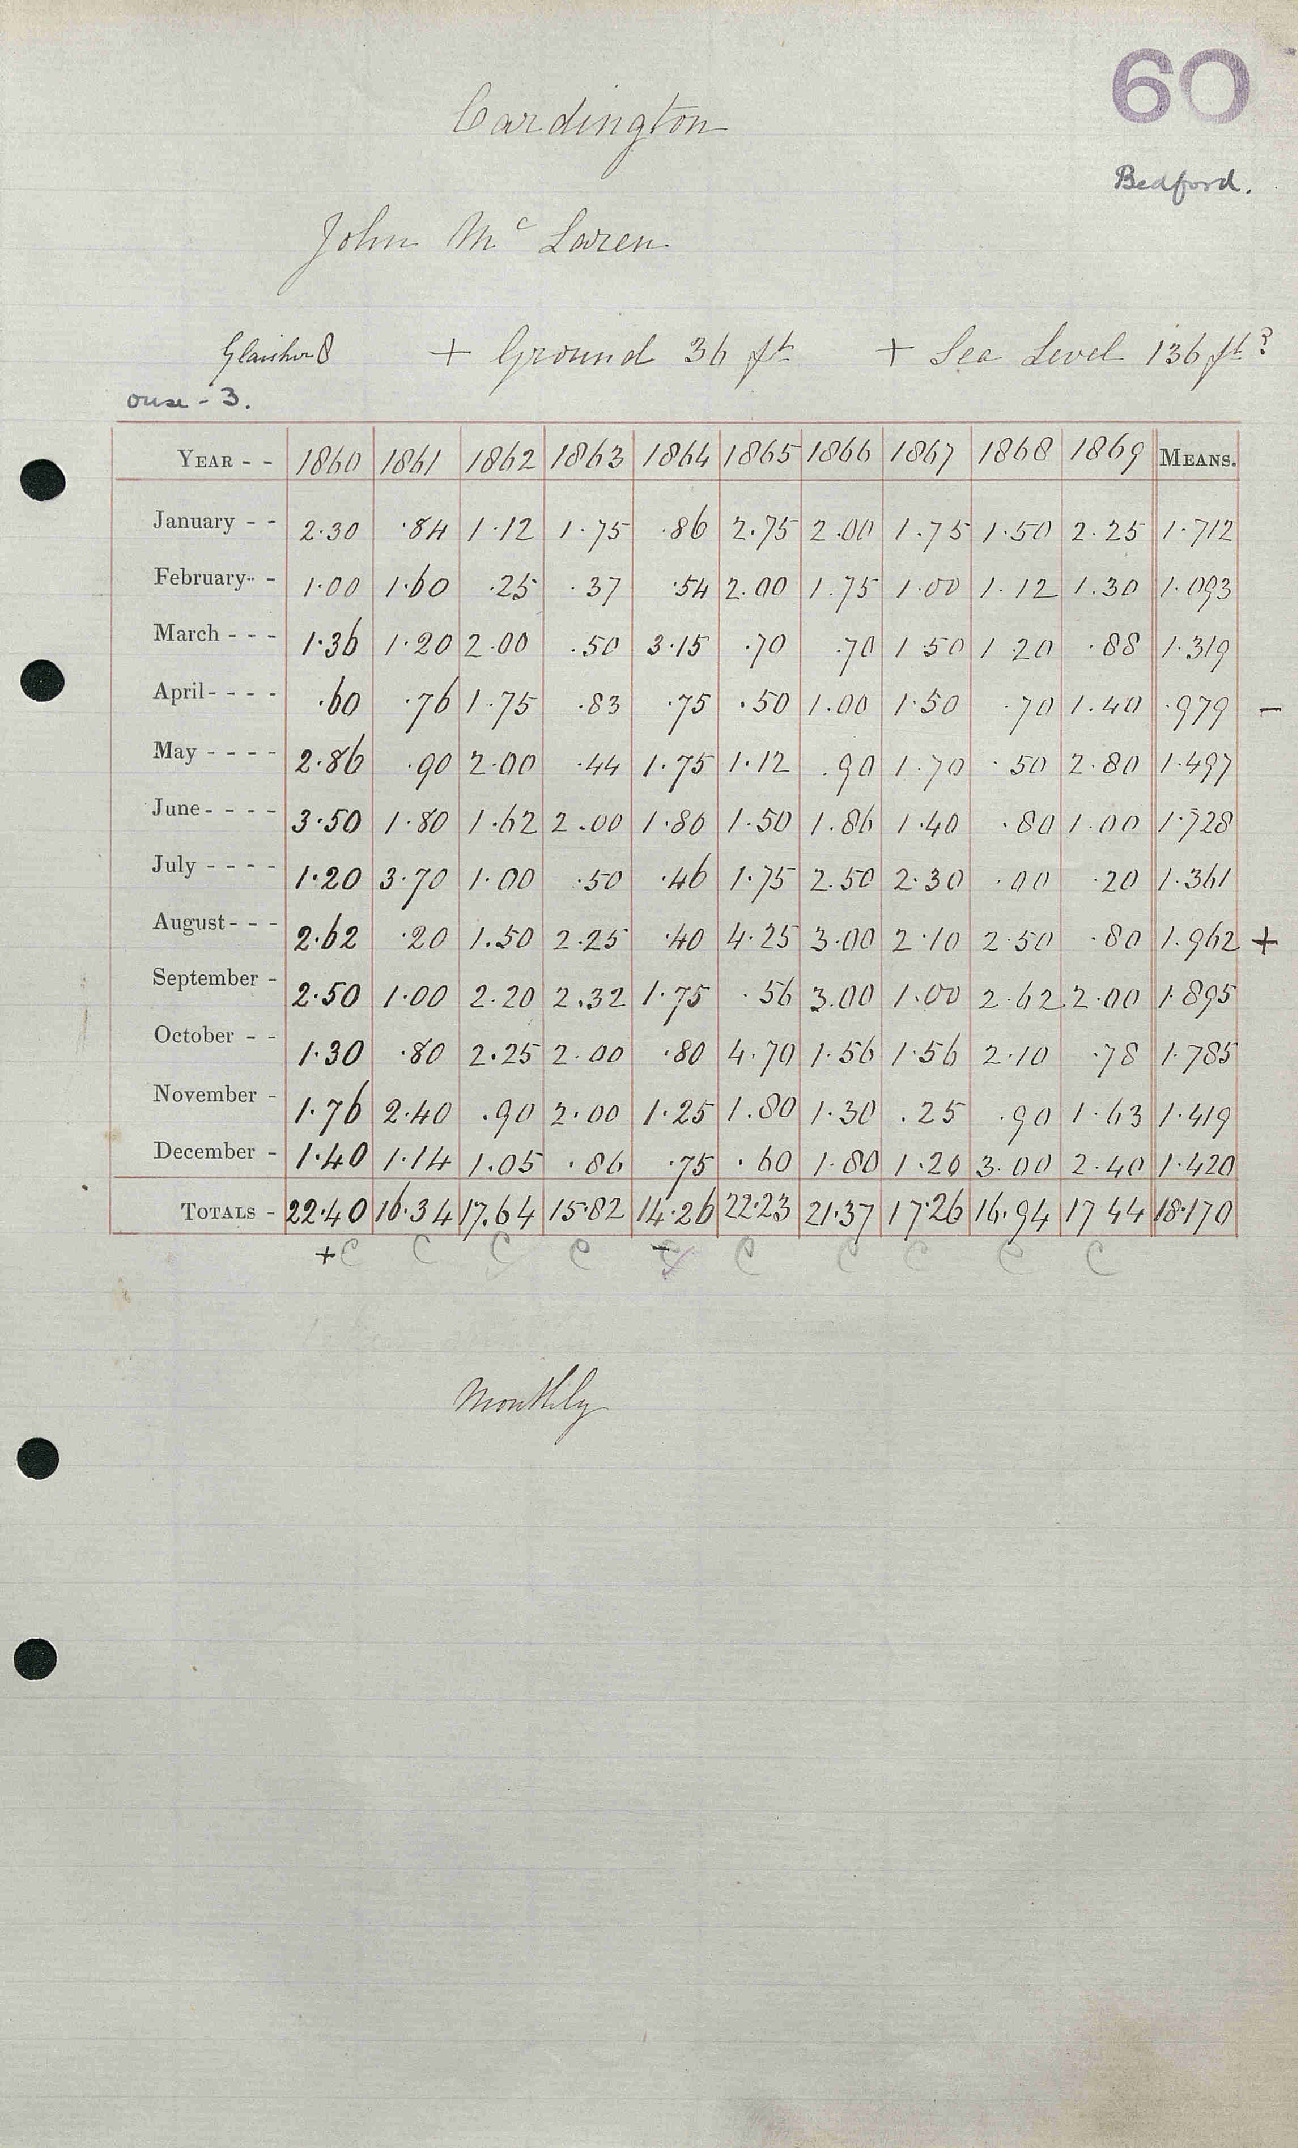 60
Cardington
Bedford.
John Mc Laren
Glaisher 8 + Ground 36 ft + Sea Level 136 ft?
ouse - 3.
YEAR - - 1860 1861 1862 1863 1864 1865 1866 1867 1868 1869 MEANS.
January - - 2.30 .84 1.12 1.75 .86 2.75 2.00 1.75 1.50 2.25 1.712
February - - 1.00 1.60 .25 .37 .54 2.00 1.75 1.00 1.12 1.30 1.093
March - - - 1.36 1.20 2.00 .50 3.15 .70 .70 1.50 1.20 .88 1.319
April - - - - .60 .76 1.75 .83 .75 .50 1.00 1.50 .70 1.40 .979 -
May - - - - 2.86 .90 2.00 .44 1.75 1.12 .90 1.70 .50 2.80 1.497
June - - - - 3.50 1.80 1.62 2.00 1.80 1.50 1.86 1.40 .80 1.00 1.728
July - - - - 1.20 3.70 1.00 .50 .46 1.75 2.50 2.30 .00 .20 1.361
August - - - 2.62 .20 1.50 2.25 .40 4.25 3.00 2.10 2.50 .80 1.962 +
September - 2.50 1.00 2.20 2.32 1.75 .56 3.00 1.00 2.62 2.00 1.895
October - - 1.30 .80 2.25 2.00 .80 4.70 1.56 1.56 2.10 .78 1.785
November - 1.76 2.40 .90 2.00 1.25 1.80 1.30 .25 .90 1.63 1.419
December - 1.40 1.14 1.05 .86 .75 .60 1.80 1.20 3.00 2.40 1.420
TOTALS - 22.40 16.34 17.64 15.82 14.26 22.23 21.37 17.26 16.94 17 44 18.170
+ C C C C - C C C C C C
Monthly